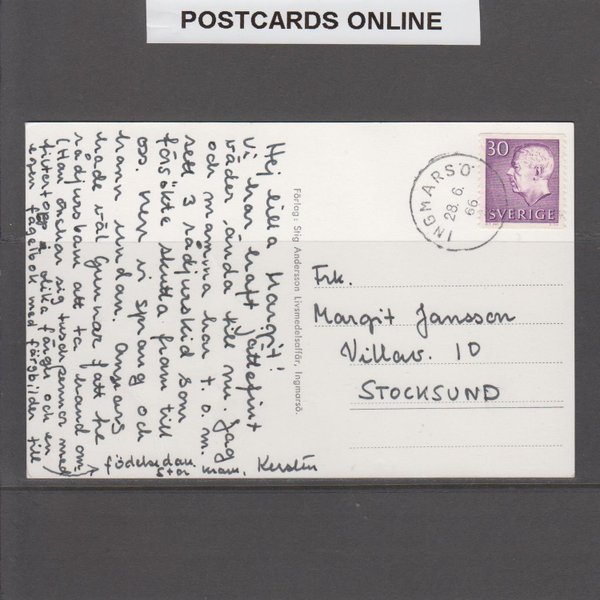 POSTCARDS ONLINE
Hej lilla Margit!
Vi har haft jättefint
väder ända till nu. Jag
och mamma har t.o.m.
sett 3 rådjurskid som
försökte skutta fram till
oss. Men vi sprang och
hann undan. Annars
hade väl Gunnar fått he
rådjursbarn att ta hand om
(Han önskar sig tuschpennor med
filtertopp i olika färger och en
egen fågelbok med färgbilder till
födelsedan.
Stor kram, Kerstin
Förlag: Stig Andersson Livsmedelsaffär, Ingmarsö.
INGMARSÖ
28.6.
66
30
SVERIGE
Frk.
Margit Jansson
Villav. 10
STOCKSUND